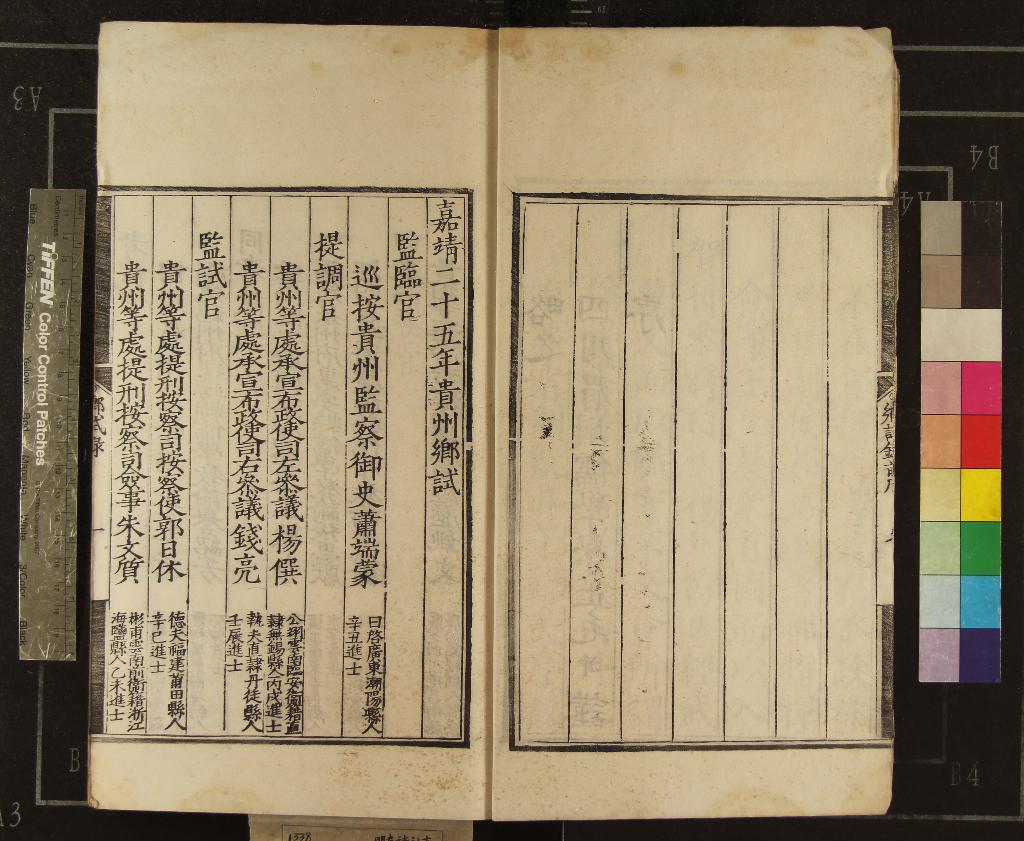 嘉靖二十五年貴州鄉試
監臨官
巡按貴州監察御史蕭端蒙
曰啓廣東潮陽縣人
辛丑進士
提調官
貴州等處承宣布政使司左叅議楊僎
公翊雲南臨安衛籍直
隸無錫縣人丙戌進士
貴州等處承宣布政使司右叅議錢亮
執夫直隸丹徒縣人
壬辰進士
監試官
貴州等處提刑按察司按察使郭日休
德夫福建莆田縣人
辛巳進士
貴州等處提刑按察司僉事朱文質
彬甫雲南前衛籍浙江
海鹽縣人乙未進士
鄉試錄
一
A3
B4
A4
B
B4
A3
TIFFEN Color Control Patches
1338